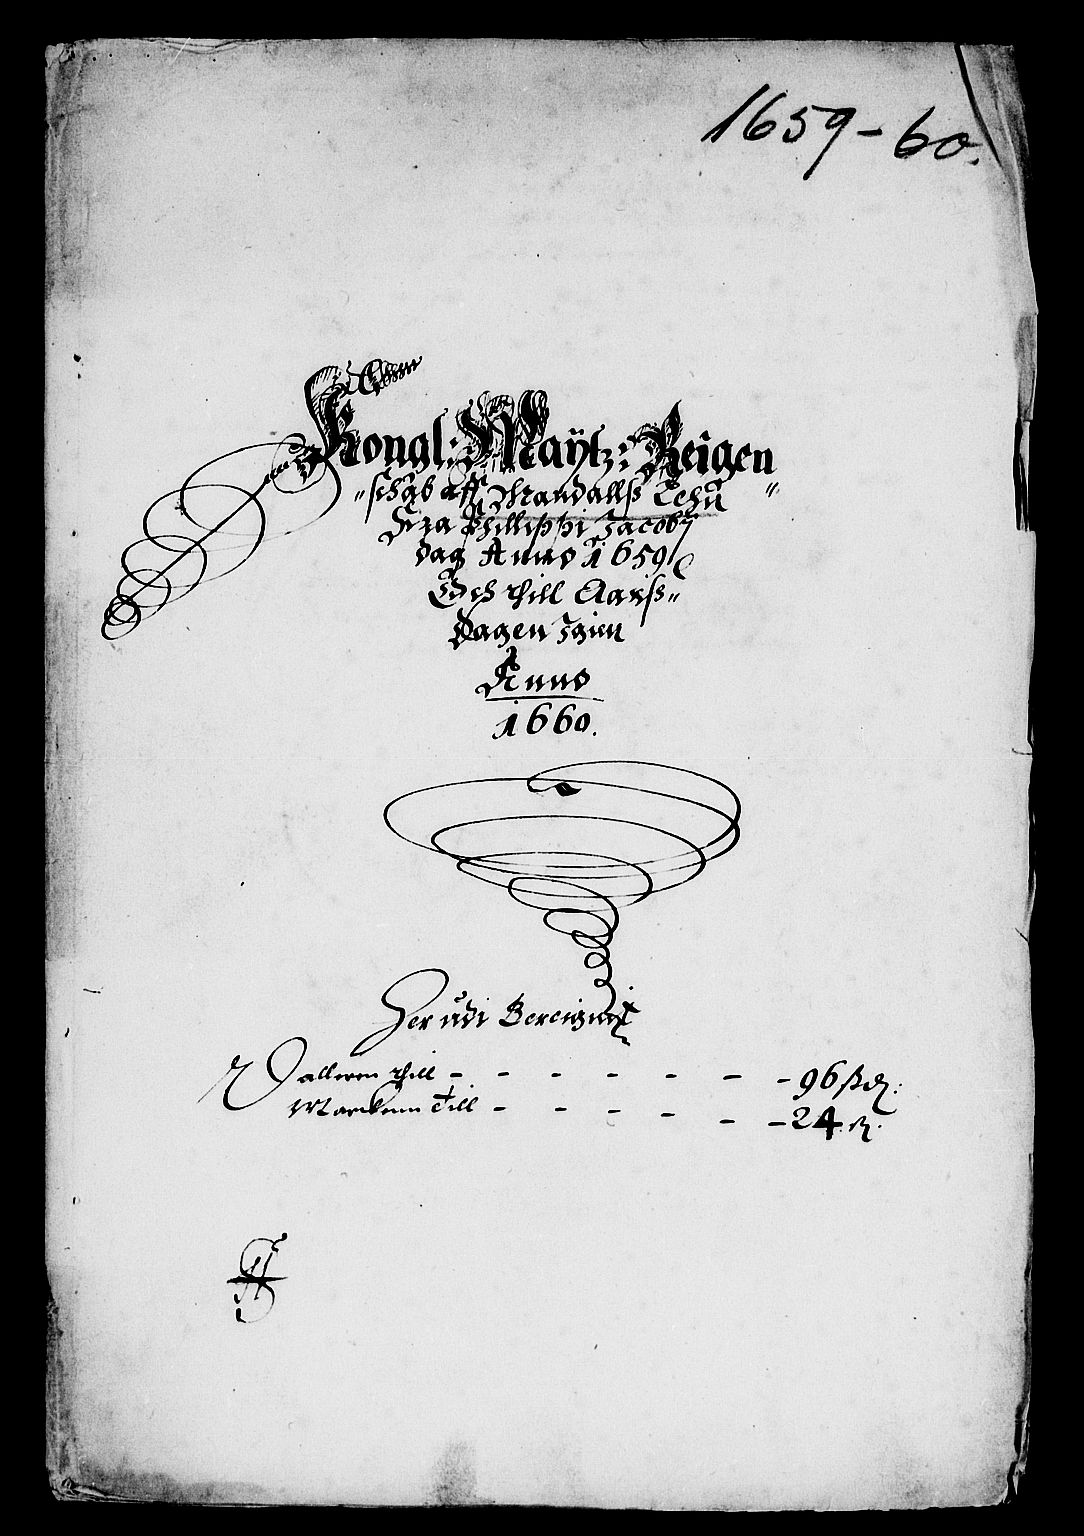 1659-60.
Kongl: Maÿtz: Reigen
"schab aff Mandallß Lehn "
Fra Phillippi Jacobj
dag Anno 1659
Och thill Aarß"
Dagen Igien
Anno
1660.
Her udi Bereignit
Dalleren thill - - - - - - - 96 ß
Marcken Till - - - - - 24 ß